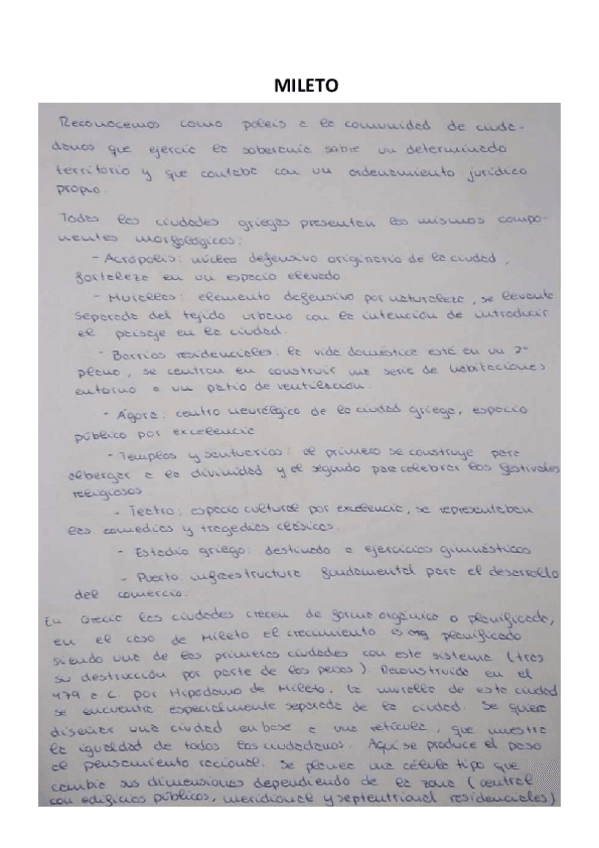 MILETO
Reconocemos como poleis a la comunidad de ciuda-
danos que ejercía la soberanía sobre un determinado
territorio y que contaba con un ordenamiento jurídico
propio.
Todas las ciudades griegas presentan los mismos compo-
nentes morfológicos:
- Acrópolis: núcleo defensivo originario de la ciudad,
fortaleza en un espacio elevado
- Murallas: elemento defensivo por naturaleza, se levanta
separada del tejido urbano con la intención de introducir
el paisaje en la ciudad.
- Barrios residenciales: la vida doméstica está en un 2º
plano, se centran en construir una serie de habitaciones
entorno a un patio de ventilación.
- Ágora: centro neurálgico de la ciudad griega, espacio
público por excelencia
- Templos y santuarios: el primero se construye para
albergar a la divinidad y el segundo para celebrar los festivales
religiosos
- Teatro: espacio cultural por excelencia, se representaban
las comedias y tragedias clásicas.
- Estadio griego: destinado a ejercicios gimnásticos
- Puerto: infraestructura fundamental para el desarrollo
del comercio.
En Grecia las ciudades crecen de forma orgánica o planificada,
en el caso de Mileto el crecimiento es planificado
siendo una de las primeras ciudades con este sistema (tras
su destrucción por parte de los persas). Reconstruida en el
479 a.C. por Hipodamo de Mileto. La muralla de esta ciudad
se encuentra especialmente separada de la ciudad. Se quiere
diseñar una ciudad en base a una retícula, que muestra
la igualdad de todos los ciudadanos. Aquí se produce el paso
al pensamiento racional. Se planea una célula tipo que
cambia sus dimensiones dependiendo de la zona (central
con edificios públicos, meridional y septentrional residenciales)